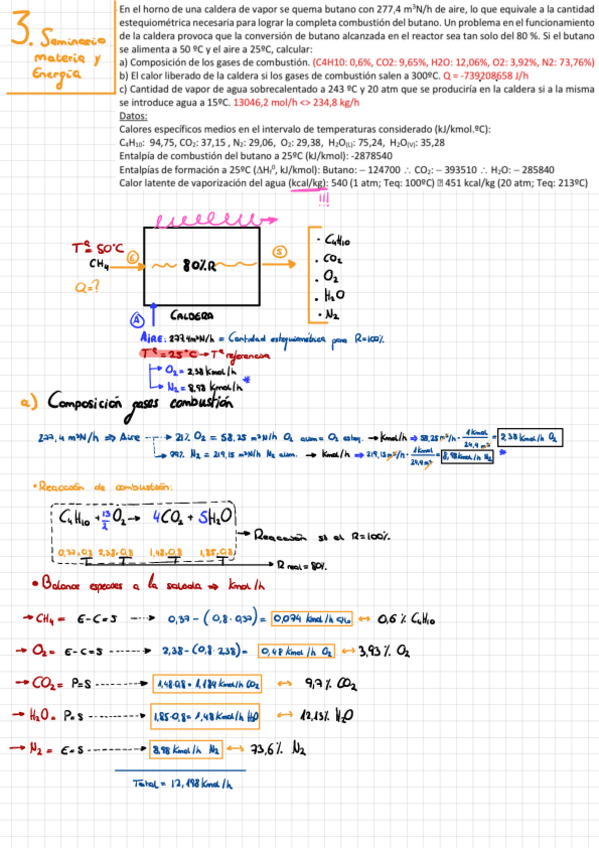 3. Seminario
materia y
Energía
En el horno de una caldera de vapor se quema butano con 277,4 m³N/h de aire, lo que equivale a la cantidad
estequiométrica necesaria para lograr la completa combustión del butano. Un problema en el funcionamiento
de la caldera provoca que la conversión de butano alcanzada en el reactor sea tan solo del 80 %. Si el butano
se alimenta a 50 ºC y el aire a 25ºC, calcular:
a) Composición de los gases de combustión. (C4H10: 0,6%, CO2: 9,65%, H2O: 12,06%, O2: 3,92%, N2: 73,76%)
b) El calor liberado de la caldera si los gases de combustión salen a 300ºC. Q = -739208658 J/h
c) Cantidad de vapor de agua sobrecalentado a 243 ºC y 20 atm que se produciría en la caldera si a la misma
se introduce agua a 15ºC. 13046,2 mol/h <> 234,8 kg/h
Datos:
Calores específicos medios en el intervalo de temperaturas considerado (kJ/kmol.ºC):
C₄H₁₀: 94,75, CO₂: 37,15 , N₂: 29,06, O₂: 29,38, H₂O(L): 75,24, H₂O(V): 35,28
Entalpía de combustión del butano a 25ºC (kJ/kmol): -2878540
Entalpías de formación a 25ºC (ΔHf⁰, kJ/kmol): Butano: – 124700 ∴ CO₂: – 393510 ∴ H₂O: – 285840
Calor latente de vaporización del agua (kcal/kg): 540 (1 atm; Teq: 100ºC) 451 kcal/kg (20 atm; Teq: 213ºC)
!!!
Tª = 50ºC
CH₄
Q=?
6
80%R
S
· C₄H₁₀
· CO₂
· O₂
· H₂O
· N₂
A
CALDERA
AIRE: 277,4m³N/h = Cantidad estequiométrica para R=100%
Tª = 25ºC → Tª referencia
O₂ = 2,38 Kmol/h
N₂ = 8,98 Kmol/h *
a) Composición gases combustión
277,4 m³N/h ⇒ Aire → 21% O₂ = 58,25 m³N/h O₂ alim = O₂ esteq. → Kmol/h ⇒ 58,25 m³/h · 1 Kmol / 24,4 m³ = 2,38 Kmol/h O₂
79% N₂ = 219,15 m³N/h N₂ alim. → Kmol/h ⇒ 219,15 m³/h · 1 Kmol / 24,4 m³ = 8,98 Kmol/h N₂ *
· Reacción de combustión:
C₄H₁₀ + 13/2 O₂ → 4CO₂ + 5H₂O
→ Reacción si el R=100%
0,37·0,8 2,38·0,8 1,48·0,8 1,85·0,8
→ R real = 80%
• Balance especies a la salida ⇒ Kmol/h
→ CH₄ = E-C=S → 0,37 - (0,8·0,37) = 0,074 kmol/h CH₄ ↔ 0,6 % C₄H₁₀
→ O₂ = E-C=S → 2,38 - (0,8·2,38) = 0,48 Kmol/h O₂ ↔ 3,93% O₂
→ CO₂ = P=S → 1,48·0,8 = 1,184 Kmol/h CO₂ ↔ 9,7% CO₂
→ H₂O = P=S → 1,85·0,8 = 1,48 Kmol/h H₂O ↔ 12,13% H₂O
→ N₂ = E=S → 8,98 Kmol/h N₂ ↔ 73,6% N₂
Total = 12,198 Kmol/h